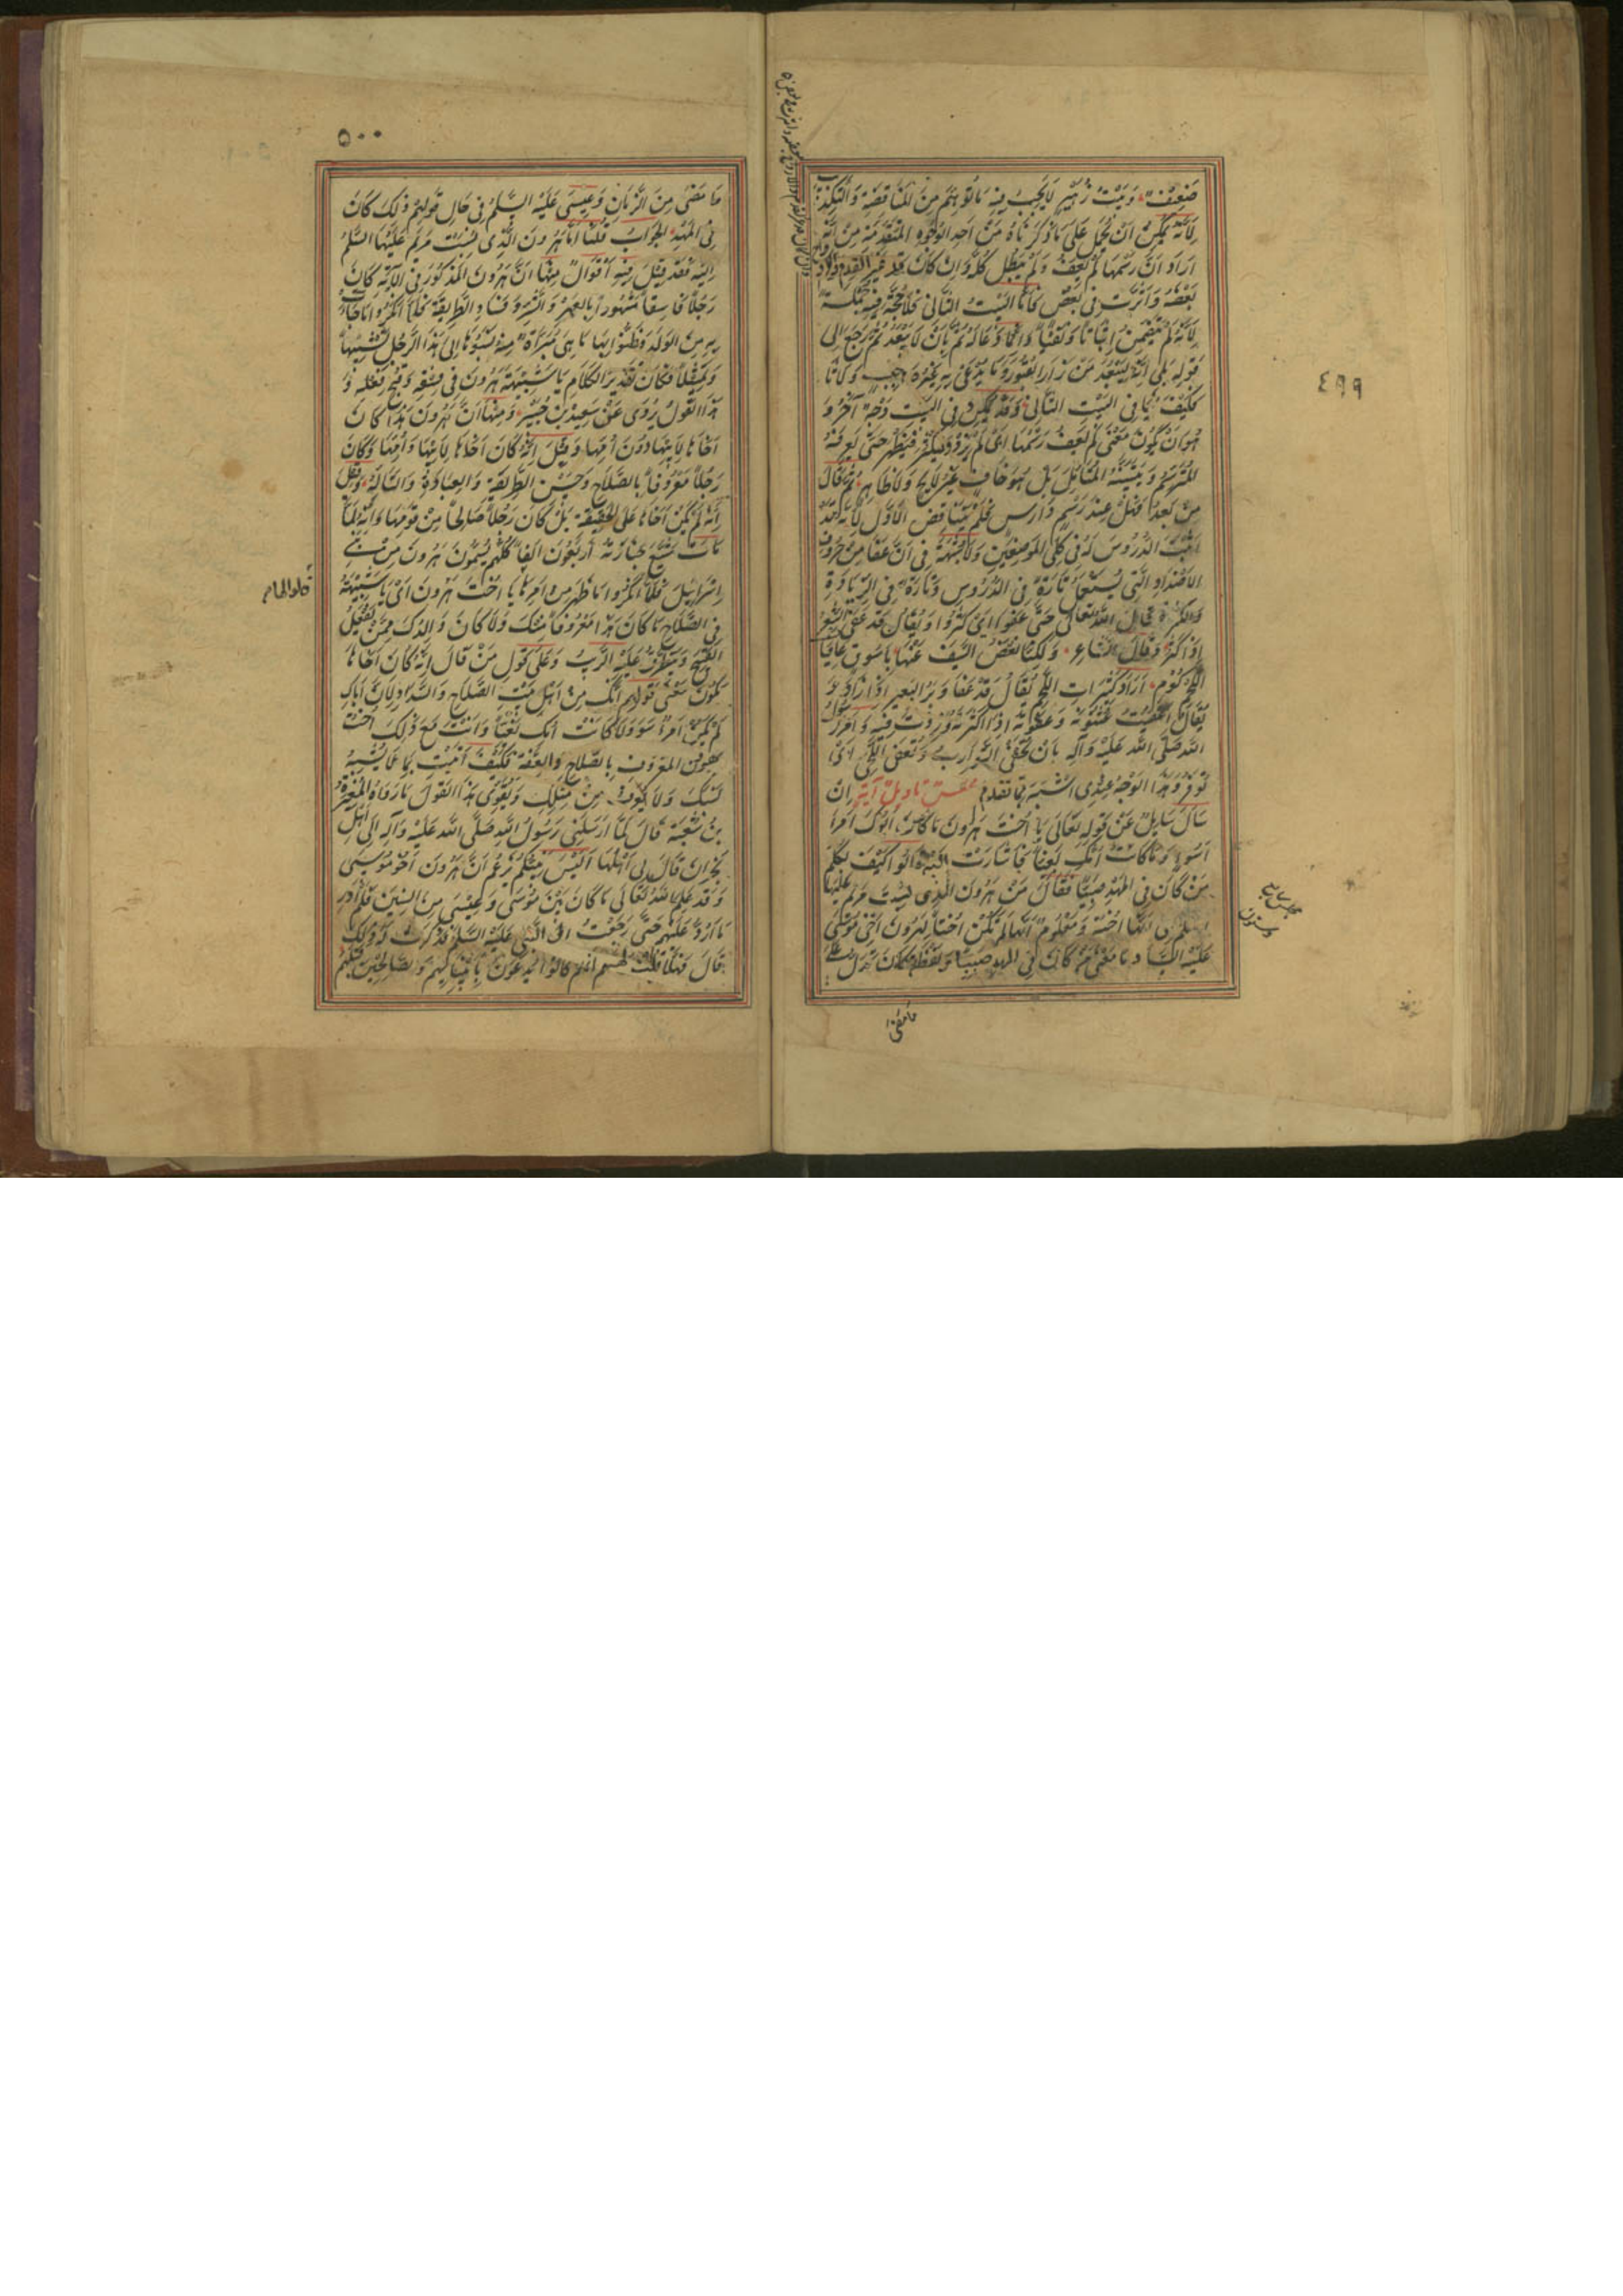 ٤٩٩
ضَعِيْفٌ وَبَيْتُ زُهَيْرٍ لَا يَجِبُ فِيهِ مَا تُوُهِّمَ مِنَ الْمُنَاقَضَةِ وَالتَّكْذِيبِ
لِأَنَّهُ يُمْكِنُ اَنْ يُحْمَلَ عَلَى مَا ذَكَرْنَاهُ مِنْ اَحَدِ الْوُجُوهِ الْمُتَقَدِّمَةِ مِنْ اَنَّهُ
اَرَادَ اَنَّ رَسْمَهَا لَمْ يَعْفُ وَلَمْ يَبْطُلْ كُلُّهُ وَاِنْ كَانَ قَدْ غَيَّرَ الْقِدَمُ
بَعْضَهُ وَاَثَّرَتْ فِي بَعْضٍ فَاَمَّا الْبَيْتُ الثَّانِي فَلَا حُجَّةَ فِيهِ
لِاَنَّهُ لَمْ يَتَضَمَّنْ اِثْبَاتًا وَنَفْيًا وَاِنَّمَا دَعَا لَهُ ثُمَّ بِاَنْ لَا يَبْعُدَ ثُمَّ رَجَعَ اِلَى
قَوْلِهِ بَلَى اِنَّهُ لَيَبْعُدُ مَنْ زَارَ الْقُبُوْرَ وَمَا يُدَّعَى بِهِ غَيْرُهُ
فِي الْبَيْتِ الثَّانِي وَقَدْ يُمْكِنُ فِي الْبَيْتِ وَجْهٌ آخَرُ وَ
هُوَ اَنْ يَكُوْنَ مَعْنَى لَمْ يَعْفُ رَسْمُهَا اَىْ لَمْ يَزِدْ وَيَكْثُرْ فَيَظْهَرَ حَتَّى يَعْرِفَهُ
الْمُتَرَسِّمُ وَيَتَبَيَّنَهُ الْمُتَأَمِّلُ بَلْ هُوَ خَافٍ غَيْرُ لَائِحٍ وَلَا ظَاهِرٍ ثُمَّ قَالَ
مِنْ بَعْدُ فَهَلْ عِنْدَ رَسْمٍ دَارِسٍ فَلَمْ يَتَنَاقَضِ الْاَوَّلَ لِأَنَّهُ قَدْ
اَثْبَتَ الدُّرُوْسَ لَهُ فِي كِلَى الْمَوْضِعَيْنِ وَلَا شُبْهَةَ فِي اَنَّ عَفَا مِنْ حُرُوْفِ
الْاَضْدَادِ الَّتِي تُسْتَعْمَلُ تَارَةً فِي الدُّرُوْسِ وَتَارَةً فِي الزِّيَادَةِ
وَالْكَثْرَةِ قَالَ اللّٰهُ تَعَالَى حَتَّى عَفَوْا اَىْ كَثُرُوْا وَيُقَالُ قَدْ عَفَى الشَّعْرُ
اِذَا كَثُرَ وَقَالَ الشَّاعِرُ وَلَكِنَّا نُعِضُّ السَّيْفَ مِنْهَا بِاَسْوُقِ عَافِيَاتِ
اللَّحْمِ كُوْمٍ اَرَادَ كَثِيْرَاتِ اللَّحْمِ يُقَالُ قَدْ عَفَا وَبَرُ الْبَعِيْرِ اِذَا زَادَ وَ
يُقَالُ اَعْفَيْتُ الشَّعْرَ وَعَفَوْتُهُ اِذَا اَكْثَرْتَهُ وَزِدْتَ فِيْهِ وَاَمَرَ رَسُوْلُ
اللّٰهِ صَلَّى اللّٰهُ عَلَيْهِ وَآلِهِ بِاَنْ تُحْفَى الشَّوَارِبُ وَتُعْفَى اللِّحَى اَىْ
تُوَفَّرُ وَهٰذَا الْوَجْهُ عِنْدِى اَشْبَهُ مِمَّا تَقَدَّمَ مَجْلِسٌ تَاوِيْلُ آيَةٍ اِنْ
سَاَلَ سَايِلٌ عَنْ قَوْلِهِ تَعَالَى يَا اُخْتَ هٰرُوْنَ مَا كَانَ اَبُوْكِ امْرَاَ
سَوْءٍ وَمَا كَانَتْ اُمُّكِ بَغِيًّا فَاَشَارَتْ اِلَيْهِ قَالُوْا كَيْفَ نُكَلِّمُ
مَنْ كَانَ فِي الْمَهْدِ صَبِيًّا فَقَالَ مَنْ هٰرُوْنُ الَّذِى نُسِبَتْ مَرْيَمُ عَلَيْهَا
السلم اِلَى اَنَّهَا اُخْتُهُ وَمَعْلُوْمٌ اَنَّهَا لَمْ تَكُنْ اُخْتًا لِهٰرُوْنَ اَخِى مُوْسَى
عَلَيْهِ السلم وَمَا مَعْنَى مَنْ كَانَ فِي الْمَهْدِ صَبِيًّا وَلَفْظَةُ كَانَ تَدُلُّ عَلَى
مامضى
٥٠٠
مَا مَضَى مِنَ الزَّمَانِ وَعِيْسَى عَلَيْهِ السَّلٰمُ فِي حَالِ قَوْلِهِمْ ذٰلِكَ كَانَ
فِي الْمَهْدِ الْجَوَابُ قُلْنَا اَمَّا هٰرُوْنُ الَّذِى نُسِبَتْ مَرْيَمُ عَلَيْهَا السَّلٰمُ
اِلَيْهِ فَقَدْ قِيْلَ فِيْهِ اَقْوَالٌ مِنْهَا اَنَّ هٰرُوْنَ الْمَذْكُوْرَ فِي الْآيَةِ كَانَ
رَجُلًا فَاسِقًا مَشْهُوْرًا بِالْعَهْرِ وَالشَّرِّ وَفَسَادِ الطَّرِيْقَةِ فَلَمَّا اَنْكَرُوْا مَا جَاءَتْ
بِهِ مِنَ الْوَلَدِ وَظَنُّوْا بِهَا مَا هِىَ مُبَرَّاَةٌ مِنْهُ نَسَبُوْهَا اِلَى هٰذَا الرَّجُلِ تَشْبِيْهًا
وَتَمْثِيْلًا فَكَانَ تَقْدِيْرُ الْكَلَامِ يَا شَبِيْهَةَ هٰرُوْنَ فِي فِسْقِهِ وَقُبْحِ فِعْلِهِ وَ
هٰذَا الْقَوْلُ يُرْوٰى عَنْ سَعِيْدِ بْنِ جُبَيْرٍ وَمِنْهَا اَنَّ هٰرُوْنَ هٰذَا كَانَ
اَخَاهَا لِاَبِيْهَا دُوْنَ اُمِّهَا وَقِيْلَ اِنَّهُ كَانَ اَخَاهَا لِاَبِيْهَا وَاُمِّهَا وَكَانَ
رَجُلًا مَعْرُوْفًا بِالصَّلَاحِ وَحُسْنِ الطَّرِيْقَةِ وَالْعِبَادَةِ وَالتَّاَلُّهِ وَقِيْلَ
اِنَّهُ لَمْ يَكُنْ اَخَاهَا عَلَى الْحَقِيْقَةِ بَلْ كَانَ رَجُلًا صَالِحًا مِنْ قَوْمِهَا وَاِنَّهُ لَمَّا
مَاتَ شَيَّعَ جَنَازَتَهُ اَرْبَعُوْنَ اَلْفًا كُلُّهُمْ يُسَمَّوْنَ هٰرُوْنَ مِنْ بَنِى
اِسْرَائِيْلَ فَلَمَّا اَنْكَرُوْا مَا ظَهَرَ مِنْ اَمْرِهَا يَا اُخْتَ هٰرُوْنَ اَىْ يَا شَبِيْهَتَهُ
فِي الصَّلَاحِ مَا كَانَ هٰذَا مَعْرُوْفًا مِنْكِ وَلَا كَانَ وَالِدُكِ مِمَّنْ يَفْعَلُ
الْقَبِيْحَ وَيَتَطَرَّقُ عَلَيْهِ الرَّيْبُ وَعَلَى قَوْلِ مَنْ قَالَ اِنَّهُ كَانَ اَخَاهَا
يَكُوْنُ مَعْنَى قَوْلِهِمْ اِنَّكِ مِنْ اَهْلِ بَيْتِ الصَّلَاحِ وَالسَّدَادِ لِاَنَّ اَبَاكِ
لَمْ يَكُنِ امْرَاَ سَوْءٍ وَلَا كَانَتْ اُمُّكِ بَغِيًّا وَاَنْتِ مَعَ ذٰلِكَ اُخْتُ
هٰرُوْنَ الْمَعْرُوْفِ بِالصَّلَاحِ وَالْعِفَّةِ فَكَيْفَ اَتَيْتِ بِمَا لَا يُشْبِهُ
نَسَبَكِ وَلَا يُعْرَفُ مِنْ مِثْلِكِ وَيُقَوِّى هٰذَا الْقَوْلَ مَا رَوَاهُ الْمُغِيْرَةُ
بْنُ شُعْبَةَ قَالَ لَمَّا اَرْسَلَنِى رَسُوْلُ اللّٰهِ صَلَّى اللّٰهُ عَلَيْهِ وَآلِهِ اِلَى اَهْلِ
نَجْرَانَ قَالَ لِى اَهْلُهَا اَلَيْسَ نَبِيُّكُمْ يَزْعُمُ اَنَّ هٰرُوْنَ اَخُوْ مُوْسَى
وَقَدْ عَلِمَ اللّٰهُ تَعَالَى مَا كَانَ بَيْنَ مُوْسَى وَعِيْسَى مِنَ السِّنِيْنَ فَلَمْ اَدْرِ
مَا اَرُدُّ عَلَيْهِمْ حَتَّى رَجَعْتُ اِلَى النَّبِىِّ عَلَيْهِ السَّلٰمُ فَذَكَرْتُ لَهُ ذٰلِكَ
قَالَ فَهَلَّا قُلْتَ لَهُمْ اِنَّهُمْ كَانُوْا يُدْعَوْنَ بِاَنْبِيَائِهِمْ وَالصَّالِحِيْنَ قَبْلَهُمْ